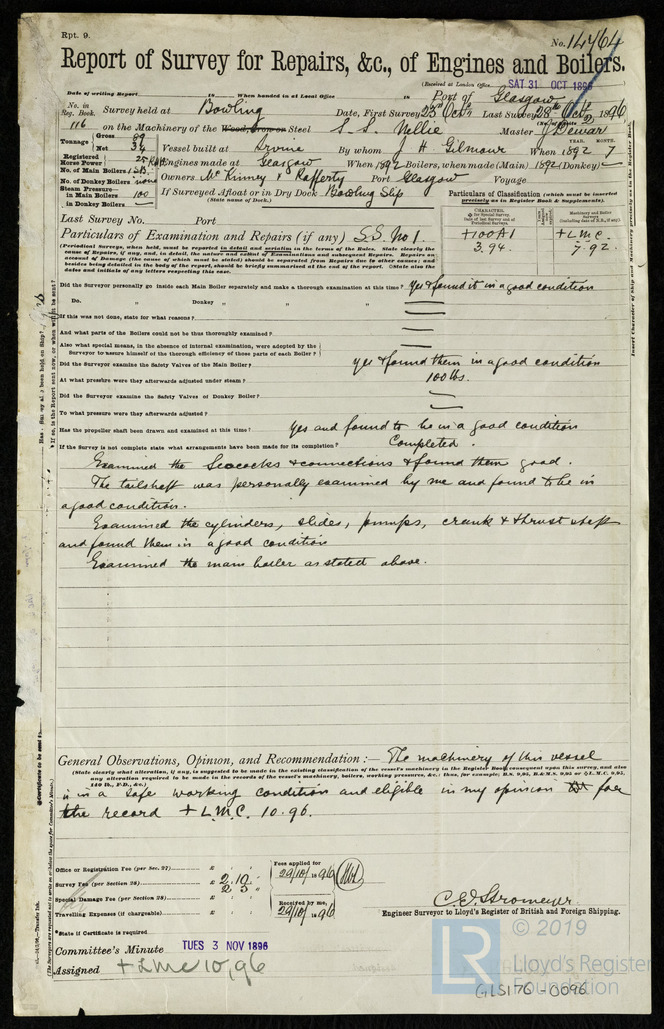 Rpt. 9.
No. 14464
Report of Survey for Repairs, &c., of Engines and Boilers.
(Received at London Office SAT 31 OCT 1896
Date of writing Report 18 When handed in at Local Office 18 Port of Glasgow
No. in Reg. Book. 116 Survey held at Bowling Date, First Survey 23rd Oct Last Survey 28th Oct 1896
on the Machinery of the Wood, Iron or Steel S.S. Nellie Master J. Dewar
Tonnage Gross 89 Net 34 Vessel built at Irvine By whom J H Gilmour When 1892 YEAR. MONTH. 7
Registered Horse Power 25 Engines made at Glasgow When 1892 Boilers, when made (Main) 1892 (Donkey) —
No. of Main Boilers
No. of Donkey Boilers none Owners McKinney & Rafferty Port Glasgow Voyage
Steam Pressure in Main Boilers 100 If Surveyed Afloat or in Dry Dock Bowling Slip
in Donkey Boilers — (State name of Dock.)
Particulars of Classification (which must be inserted precisely as in Register Book & Supplements).
Last Survey No. Port
+100A1 +L.M.C.
3.94. 7.92.
Particulars of Examination and Repairs (if any) S.S. No 1.
(Periodical Surveys, when held, must be reported in detail and seriatim in the terms of the Rules. State clearly the cause of Repairs, if any, and, in detail, the nature and extent of Examinations and subsequent Repairs. Repairs on account of Damage (the cause of which must be stated) should be separated from Repairs due to other causes; and besides being detailed in the body of the report, should be briefly summarised at the end of the report. State also the dates and initials of any letters respecting this case.
Did the Surveyor personally go inside each Main Boiler separately and make a thorough examination at this time? Yes & found it in a good condition
Do. „ Donkey „ „ „ —
If this was not done, state for what reasons? —
And what parts of the Boilers could not be thus thoroughly examined? —
Also what special means, in the absence of internal examination, were adopted by the Surveyor to assure himself of the thorough efficiency of those parts of each Boiler? —
Did the Surveyor examine the Safety Valves of the Main Boiler? yes & found them in a good condition
At what pressure were they afterwards adjusted under steam? 100 lbs.
Did the Surveyor examine the Safety Valves of Donkey Boiler? —
To what pressure were they afterwards adjusted? —
Has the propeller shaft been drawn and examined at this time? yes and found to be in a good condition
If the Survey is not complete state what arrangements have been made for its completion? Completed.
Examined the Seacocks & connections & found them good.
The tailshaft was personally examined by me and found to be in
a good condition.
Examined the cylinders, slides, pumps, crank & thrust shaft
and found them in a good condition
Examined the main boiler as stated above.
General Observations, Opinion, and Recommendation:— The machinery of this vessel
(State clearly what alteration, if any, is suggested to be made in the existing classification of the vessel's machinery in the Register Book consequent upon this survey, and also any alteration required to be made in the records of the vessel's machinery, boilers, working pressures, &c.: thus, for example; B.S. 9,95, B.&M.S. 9,95 or L.M.C. 9,95, 140 lb., F.D., &c.)
is in a safe working condition and eligible in my opinion for
the record +L.M.C. 10.96.
Office or Registration Fee (per Sec. 27) £ : :
Survey Fee (per Section 28) £ 2 . 10 .
Special Damage Fee (per Section 28) £
Travelling Expenses (if chargeable) £ : :
Fees applied for 29/10/1896
Received by me, 29/10/1896
C. E. Stromeyer
Engineer Surveyor to Lloyd's Register of British and Foreign Shipping.
*State if Certificate is required
Committee's Minute TUES 3 NOV 1896
Assigned +LMC 10,96
© 2019
LR
Lloyd's Register
Foundation
GLS176-0096